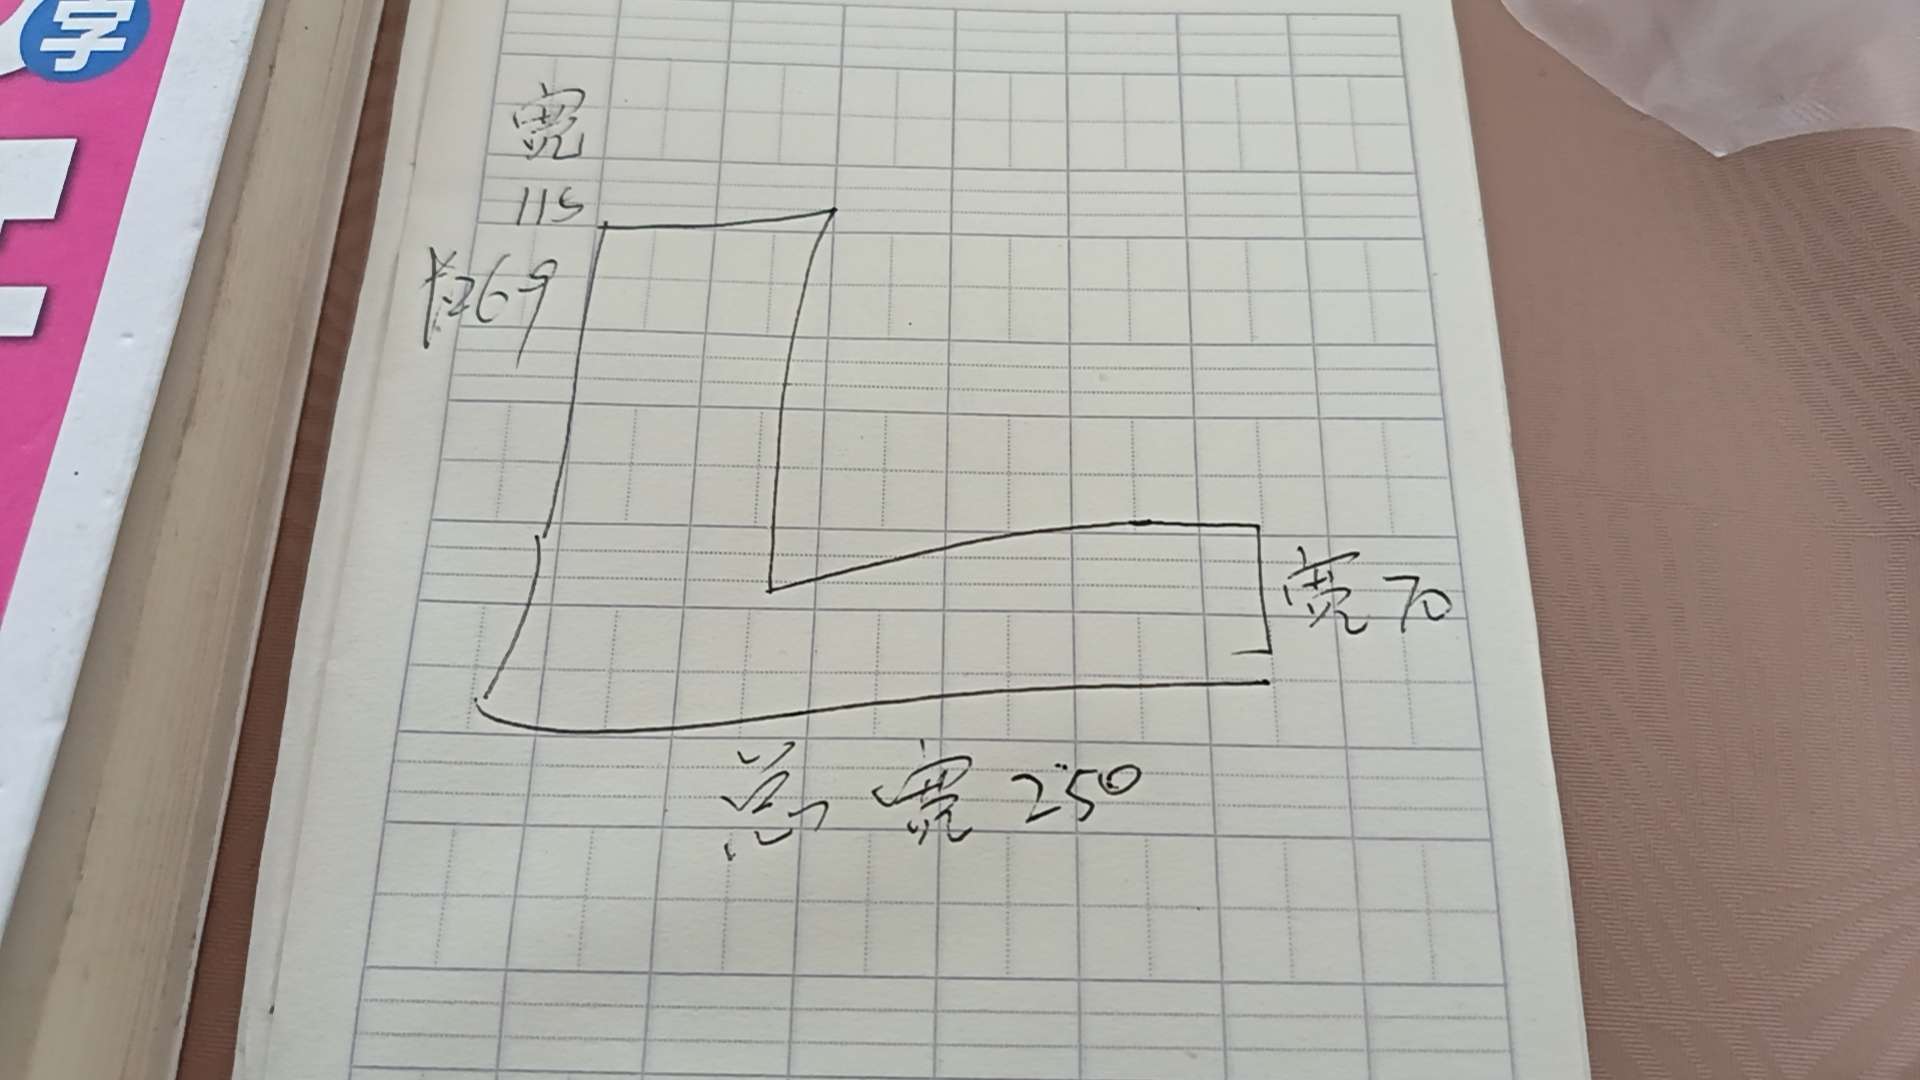 字
宽
115
长269
宽70
总宽250